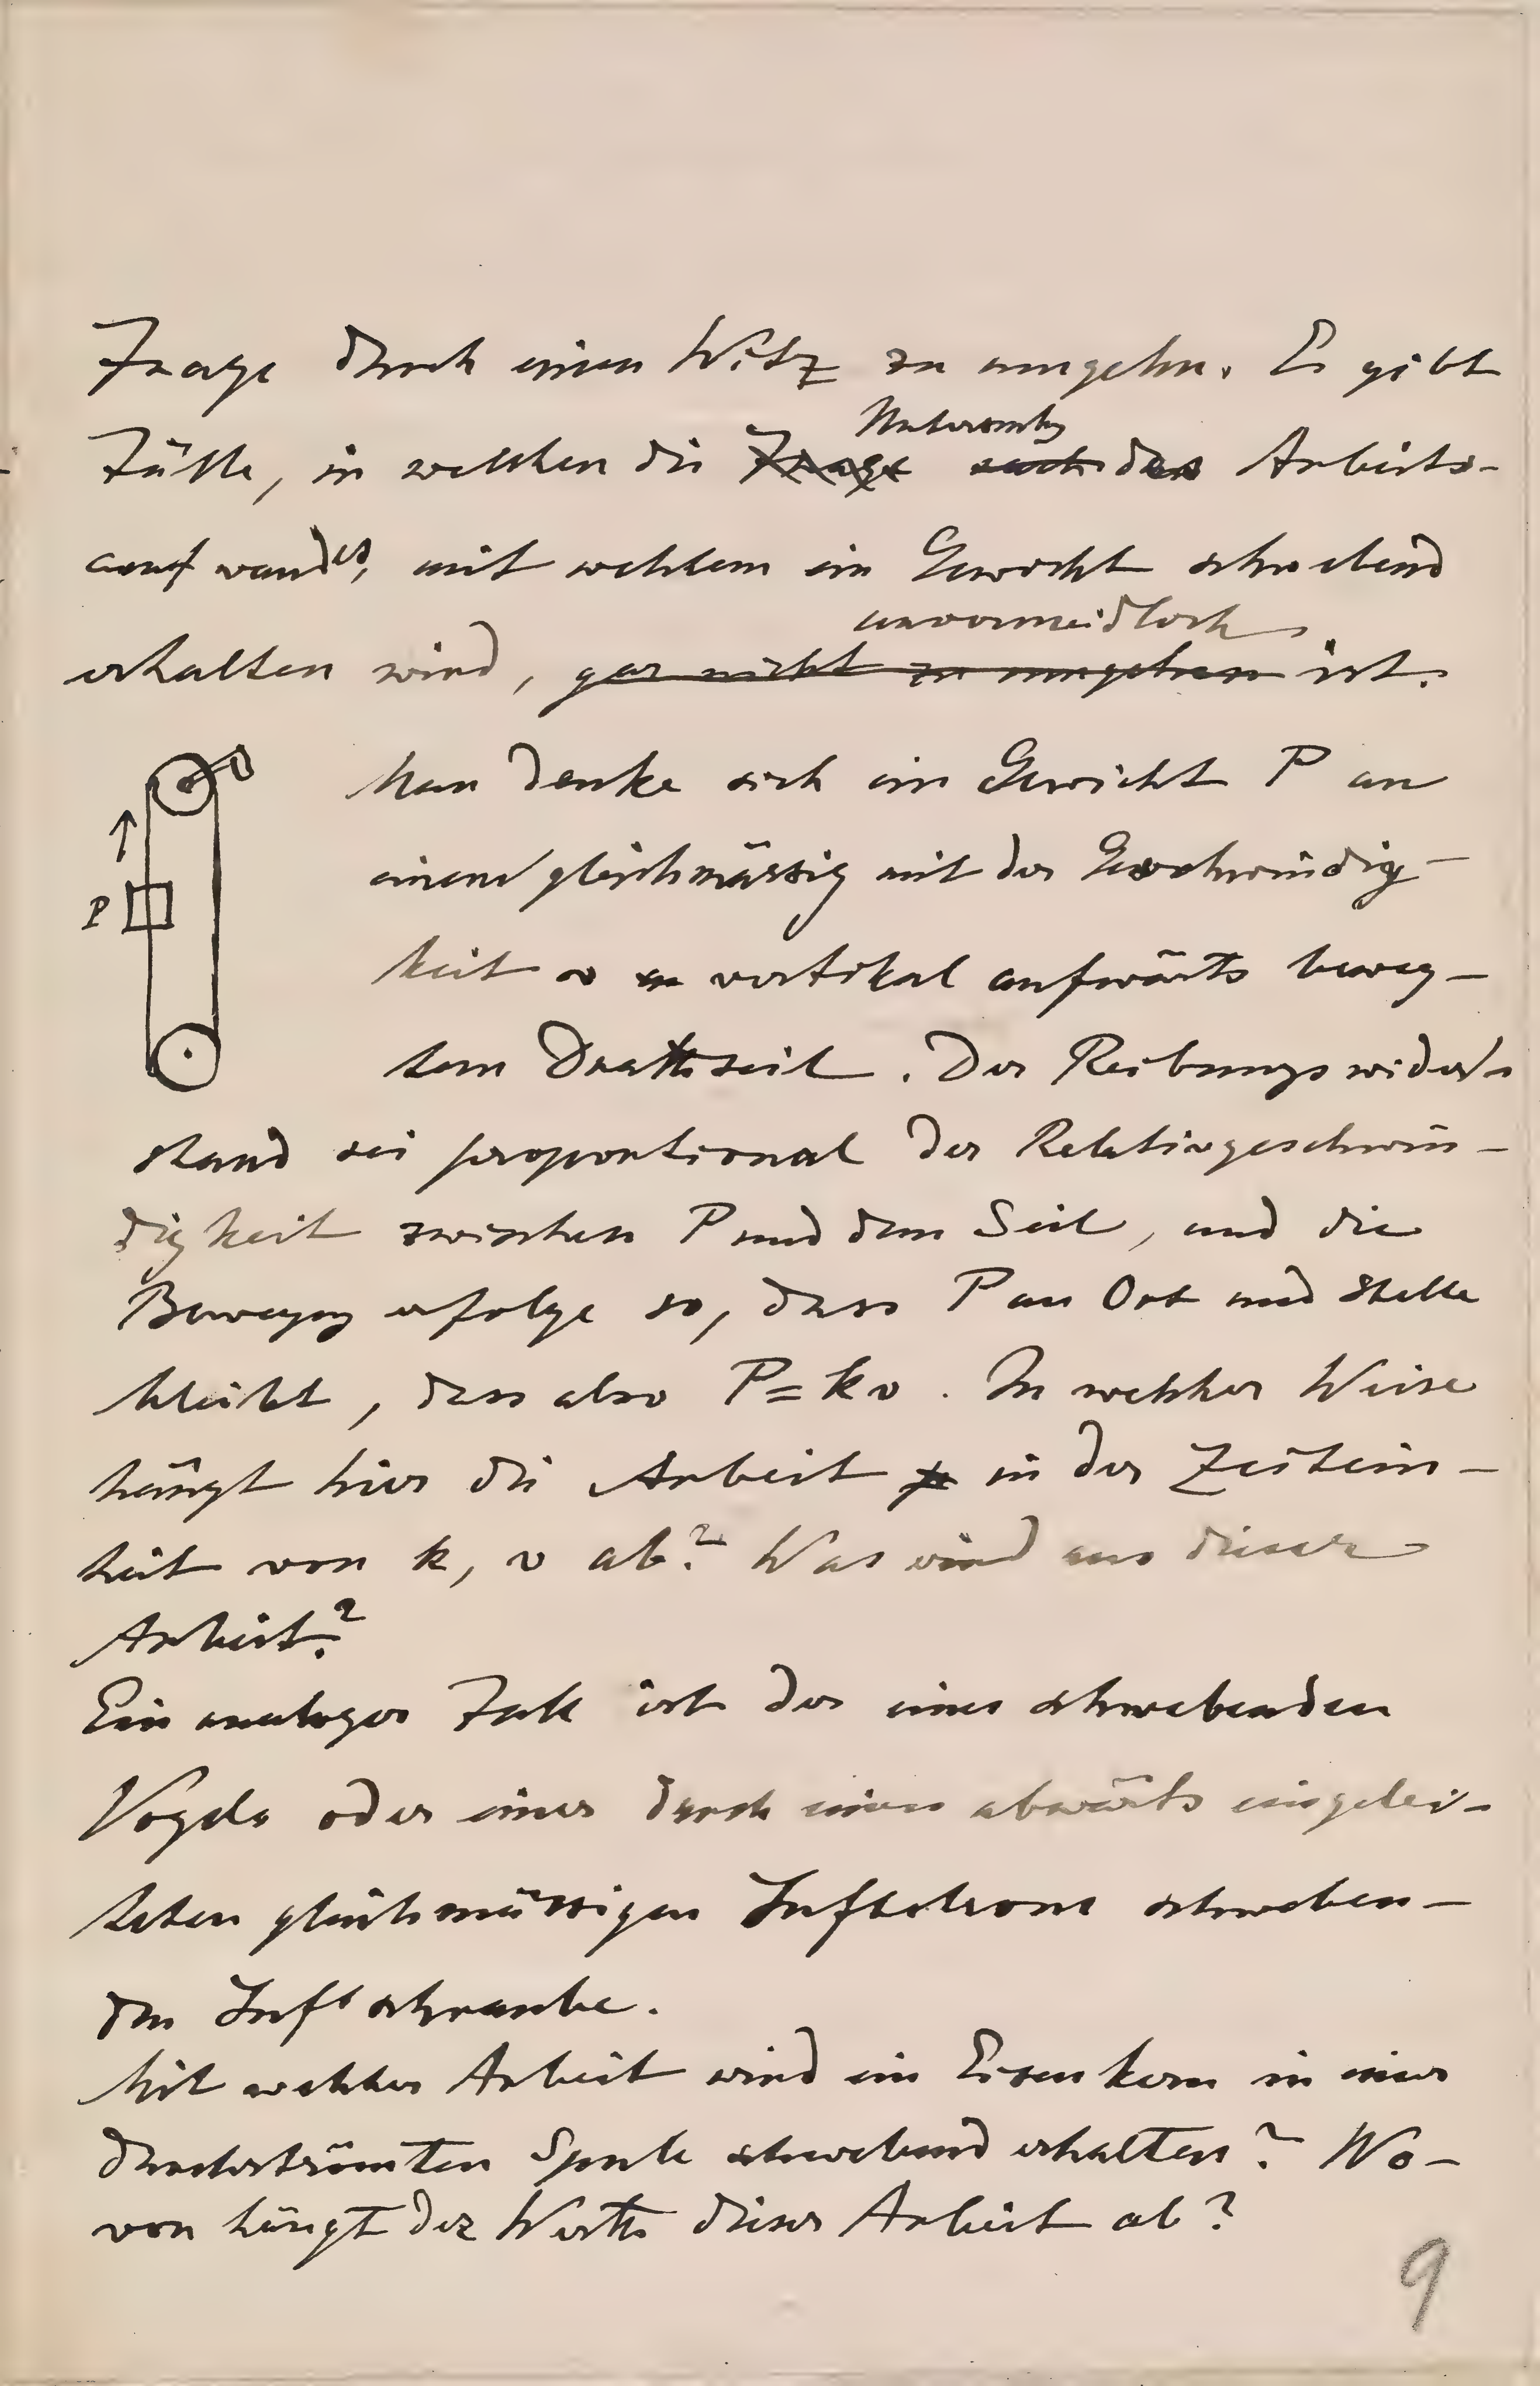 Frage durch einen Witz zu umgehn. Es gibt
Fälle, in welchen die Frage Untersuchg nach des Arbeits-
aufwandes, mit welchem ein Gewicht schwebend
erhalten wird, gar nicht zu umgehen unvermeidlich ist.
Man denke sich ein Gewicht P an
einem gleichmässig mit der Geschwindig-
keit v vertikal aufwärts beweg-
tem Drathseil. Der Reibungswider-
stand sei proportional der Relativgeschwin-
digkeit zwischen P und dem Seil, und die
Bewegung erfolge so, dass P an Ort und Stelle
bleibt, dass also P = kv. In welcher Weise
hängt hier die Arbeit in der Zeitein-
heit von k, v ab? Was wird aus dieser
Arbeit?
Ein analoger Fall ist der eines schwebenden
Vogels oder einer durch einen abwärts eingelei-
teten gleichmässigen Luftstrom schweben-
den Luftschraube.
Mit welcher Arbeit wird ein Eisenkern in einer
durchströmten Spule schwebend erhalten? Wo-
von hängt der Werth dieser Arbeit ab?
P
9